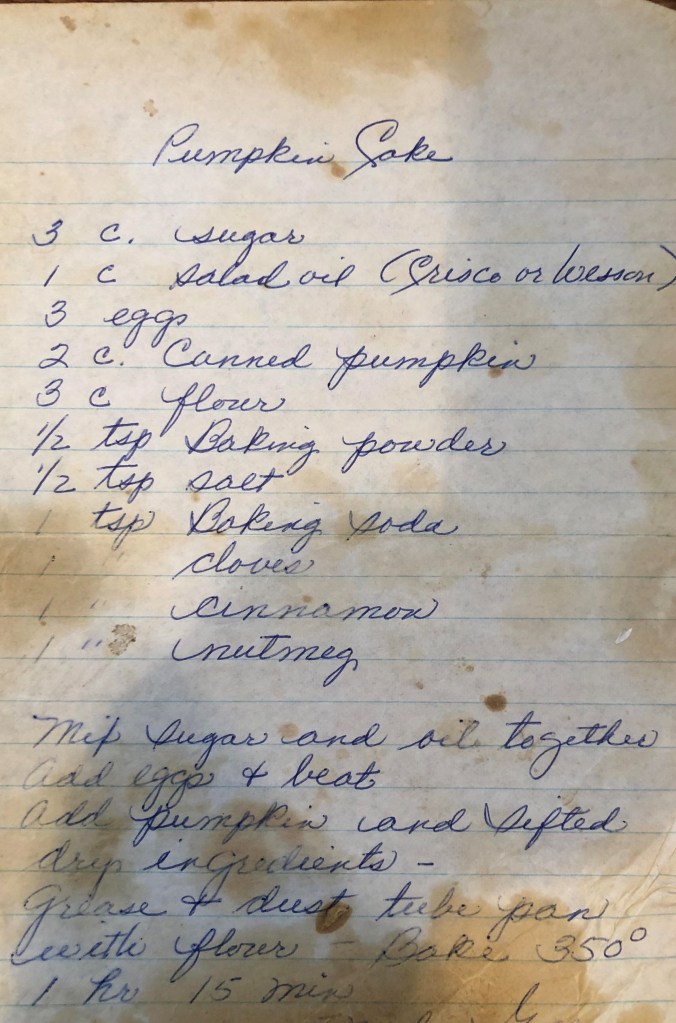 Pumpkin Cake
3 c. sugar
1 c salad oil (Crisco or Wesson)
3 eggs
2 c. Canned pumpkin
3 c flour
1/2 tsp Baking powder
1/2 tsp salt
1 tsp Baking soda
1 " cloves
1 " cinnamon
1 " nutmeg
Mix sugar and oil together
Add eggs & beat
Add pumpkin and sifted
dry ingredients -
Grease & dust tube pan
with flour - Bake 350°
1 hr 15 min